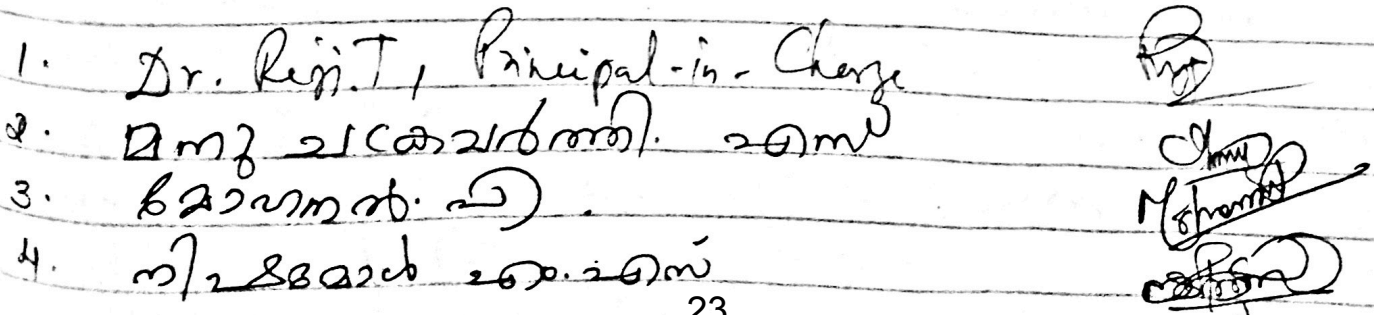 1. Dr. Reji.T, Principal-in-Charge
2. മനു ചക്രവർത്തി. എസ്
3. മോഹനൻ. പി.
4. നിഷമോൾ എം.എസ്
23